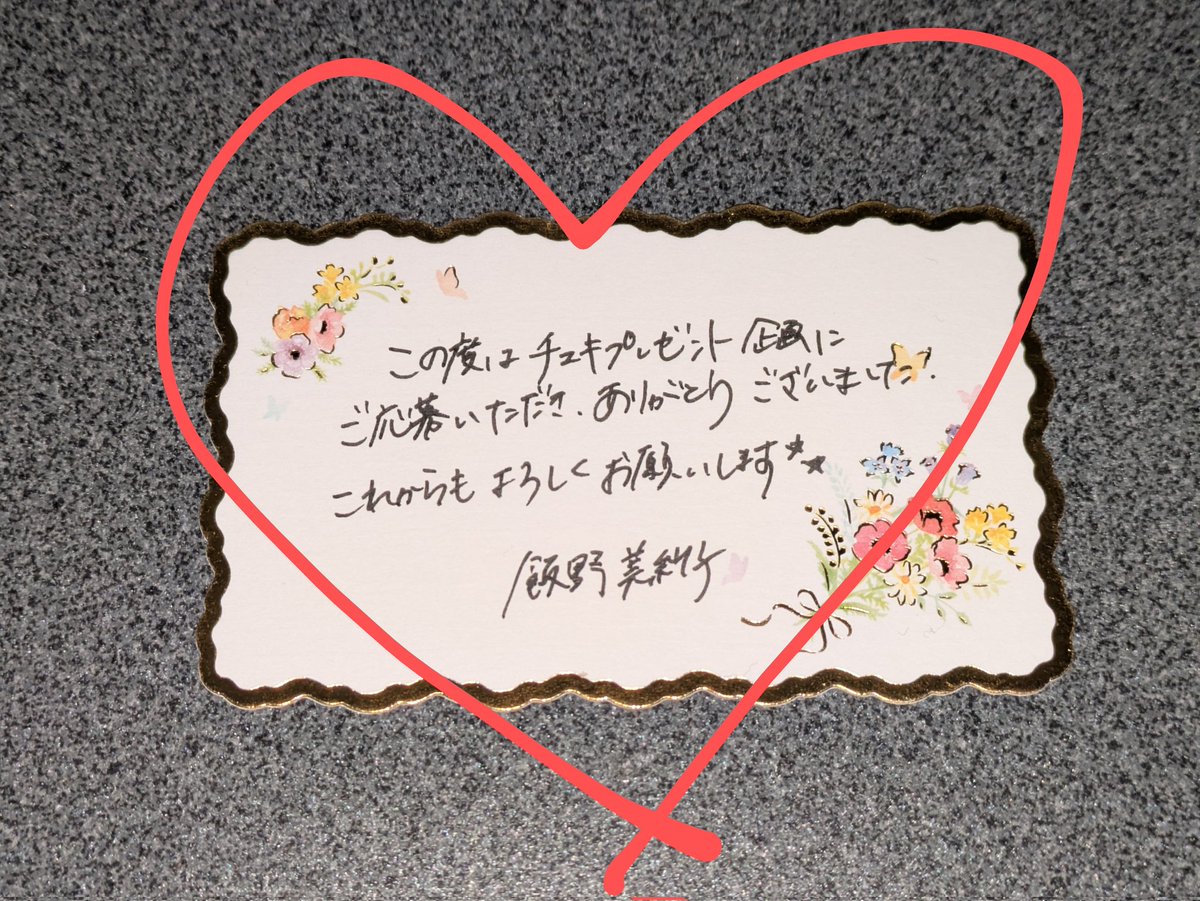 この度はチェキプレゼント企画に
ご応募いただき、ありがとうございました.
これからもよろしくお願いします★★
飯野美紗子